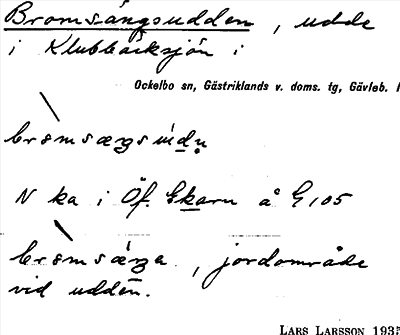 Bromsängsudden, udde
i Klubbäcksjön i
Ockelbo sn, Gästriklands v. doms. tg, Gävleb.
brömsæŋs
N ka i Öf. Ekarn å G 105
, jordområde
vid udden.
LARS LARSSON 1935